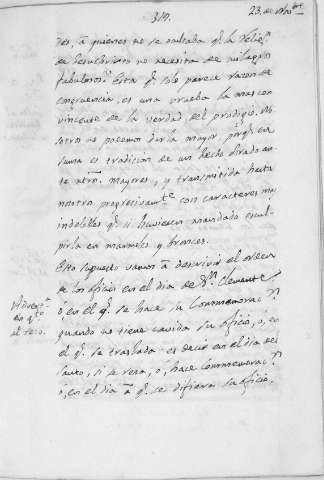 319.
23. de Nobre
das, á quienes no se oculta q.e la Relig.n
de Jesuchristo no necesita de milagros
fabulosos. Esta q.e solo parece razon de
congruencia, es una prueba la mas con
vincente de la verdad del prodigio. No
sotros no podemos dar la mayor, porq.e en
suma es tradicion de un hecho obrado an
te ntros. mayores, y transmitida hasta
nosotros progresivam.te con caracteres mas
indelebles q.e si huviesen mandado escul
pirla en marmoles y bronces.
Esto supuesto vamos á describir el orden
de los oficios en el dia de S.n Clemente
ó en el q.e se hace su Conmemorac.n
quando no tiene cavida su oficio, ó, en
el q.e se traslada: es decir en el dia del
Santo, si se reza, ó, hace conmemorac.n
ó, en el dia á q.e se difiera su oficio.
en q.to
al rezo.